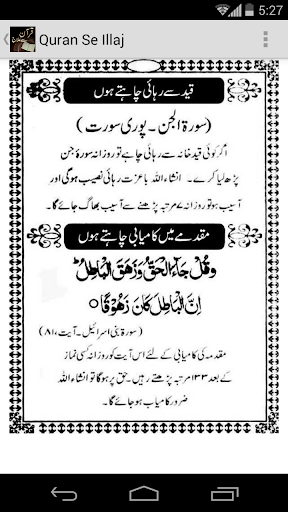 5:27
Quran Se Illaj
قید سے رہائی چاہتے ہوں
(سورۃ الجن ۔ پوری سورت)
اگر کوئی قید خانہ سے رہائی چاہے تو روزانہ سورۃ جن
پڑھ لیا کرے۔ انشاء اللہ باعزت رہائی نصیب ہوگی اور
آسیب ہو تو روزانہ ۷ مرتبہ پڑھنے سے آسیب بھاگ جائے گا۔
مقدمے میں کامیابی چاہتے ہوں
وَقُلْ جَآءَ الْحَقُّ وَزَهَقَ الْبَاطِلُ ؕ
اِنَّ الْبَاطِلَ كَانَ زَهُوْقًا ۝
(سورۃ بنی اسرائیل۔ آیت، ۸۱)
مقدمہ کی کامیابی کے لئے اس آیت کو روزانہ کسی نماز
کے بعد ۱۳۳ مرتبہ پڑھتے رہیں۔ حق پر ہوگا تو انشاء اللہ
ضرور کامیاب ہو جائے گا۔